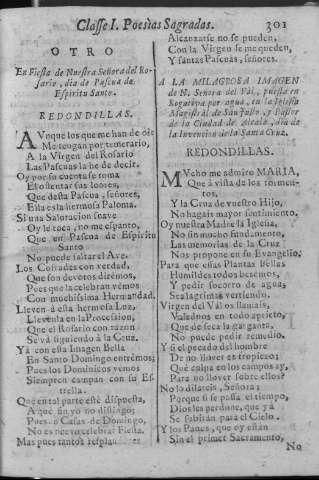 Classe I. Poesias Sagradas. 301
OTRO
En Fiesta de Nuestra Señora del Rosario, dia de Pascua de
Espiritu Santo.
REDONDILLAS.
AUnque los que me han de oir
Me tengan por temerario,
A la Virgen del Rosario
Las Pascuas la he de decir.
Oy por su cuenta se toma
El ostentar sus loores,
Que desta Pascua, señores,
Ella es la hermosa Paloma.
Si una Saloracion suave
Oy le toca, no me espanto,
Que en Pascua de Espiritu
Santo
No puede faltar el Ave.
Los Cofrades con verdad,
Que son devotos dirémos,
Pues que la celebran vémos
Con muchissima Hermandad.
Lleven à ella hermosa Loz,
Llevenla en la Procession,
Que el Rosario con razon
Se và siguiendo à la Cruz.
Yà con esta Imagen Bella
En Santo Domingo entrèmos;
Pues los Dominicos vemos
Siempre campan con su Estrella.
Que en tal parte esté dispuesta,
A que sin yo no distingo;
Pues à Casas de Domingo,
No es necio celebrar Fiesta.
Mas pues tantos resplan
Alcanzarse no se pueden,
Con la Virgen se me queden,
Y santas Pascuas, señores.
A LA MILAGROSA IMAGEN
de N. Señora del Vál, puesta en
Rogativa por agua, en la Iglesia
Magistral de San Justo, y Pastor
de la Ciudad de Alcalà, dia de
la Invencion de la Santa Cruz.
REDONDILLAS.
MUcho me admiro MARIA,
Que à vista de los tormentos,
Y la Cruz de vuestro Hijo,
No hagais mayor sentimiento.
Oy nuestra Madre la Iglesia,
No sin mucho fundamento,
Las memorias de la Cruz
Nos propone en su Evangelio.
Para que essas Plantas bellas
Humildes todos besemos,
Y pedir socorro de agua;
Sea lagrimas vertiendo.
Virgen del Vál os llamais,
Valednos en todo aprieto,
Que de seca la garganta,
No puede pedir remedio.
Y si el pecado del hombre
De no llover es tropiezo;
Què culpa en los campos ay,
Para no llover sobre ellos?
No lo dilateis, Señora;
Porque si se passa el tiempo,
Dios les perdone, que yà
Se subiràn para el Cielo.
Y los Panes, que oy están
Sin el primer Sacramento,
No